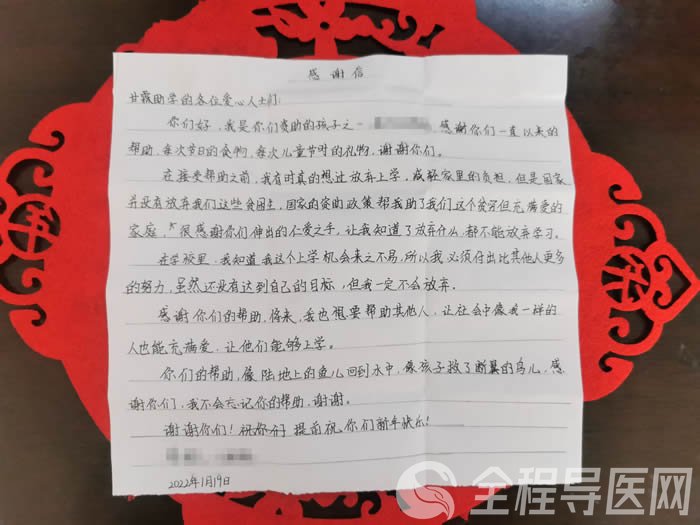 感谢信
甘霖助学的各位爱心人士们:
你们好,我是你们资助的孩子之一 感谢你们一直以来的
帮助,每次节日的食物,每次儿童节时的礼物,谢谢你们。
在接受帮助之前,我有时真的想过放弃上学,减轻家里的负担,但是国家
并没有放弃我们这些贫困生,国家的资助政策帮我助了我们这个贫穷但充满爱的
家庭,很感谢你们伸出的仁爱之手,让我知道了放弃什么,都不能放弃学习。
在学校里,我知道我这个上学机会来之不易,所以我必须付出比其他人更多
的努力,虽然还没有达到自己的目标,但我一定不会放弃。
感谢你们的帮助,将来,我也想要帮助其他人,让社会中像我一样的
人也能充满爱,让他们能够上学。
你们的帮助,像陆地上的鱼儿回到水中,像孩子救了断翼的鸟儿,感
谢你们,我不会忘记你的帮助,谢谢。
谢谢你们!祝你们提前祝你们新年快乐!
2022年1月19日
全程导医网